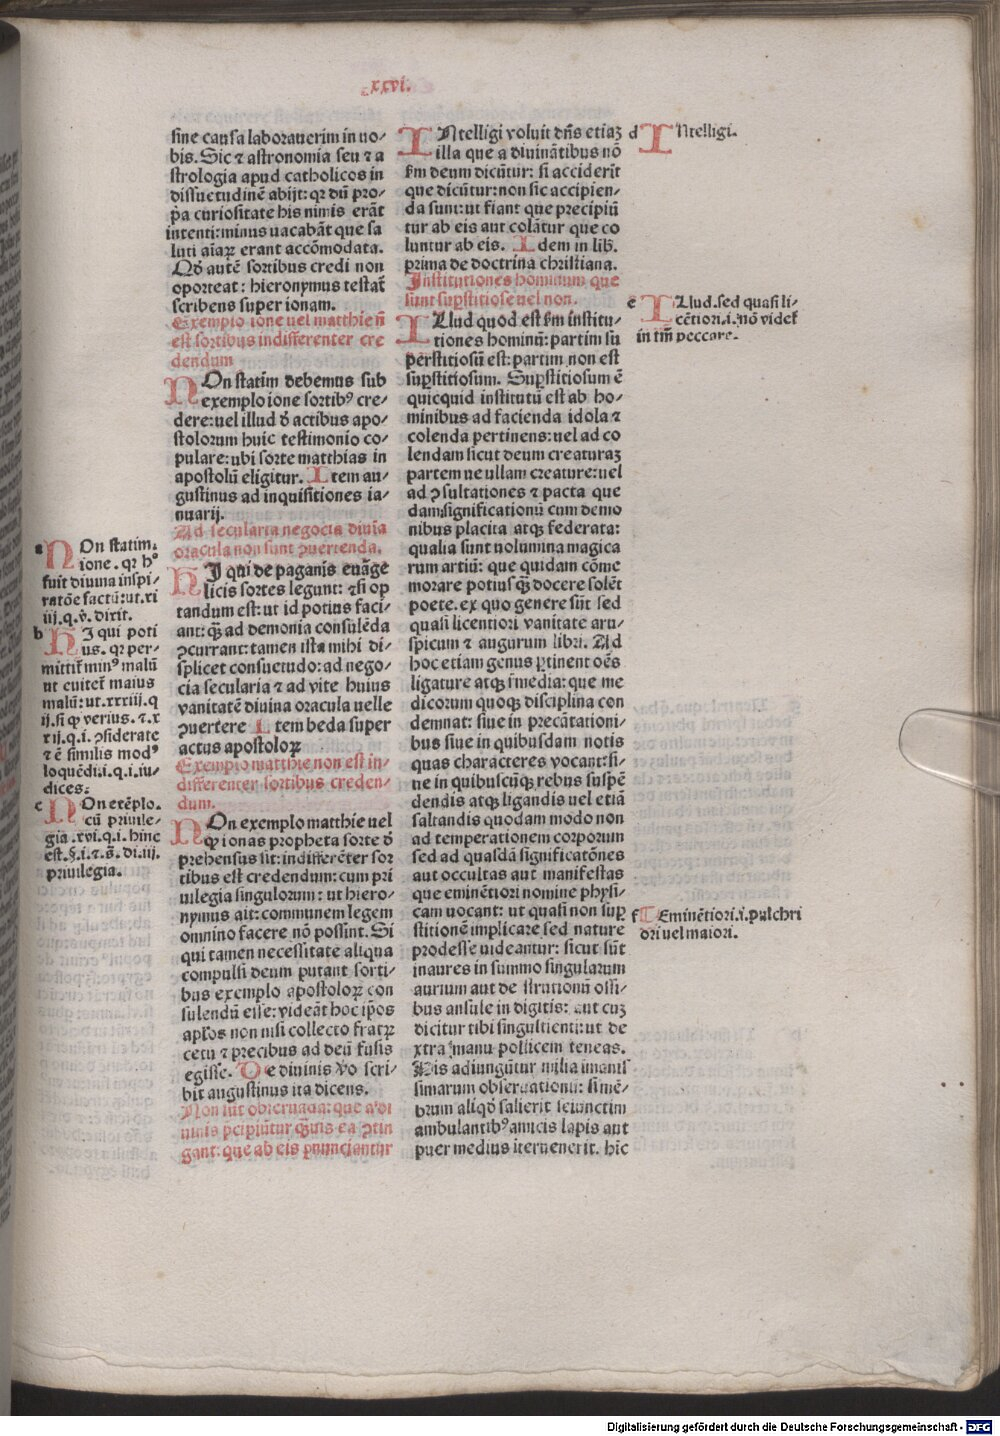 xxvi.
sine causa laborauerim in uo⸗
bis. Sic ⁊ astronomia seu ⁊ a
strologia apud catholicos in
dissuetudinē abijt: qꝛ dū pro⸗
p̄a curiositate his nimis erāt
intenti: minus uacabāt que sa
luti aīaꝝ erant accōmodata.
Qđ autē sortibus credi non
oporteat: hieronymus testat̄
scribens super ionam.
Exemplo ione uel matthie ñ
est sortibus indifferenter cre
dendum
NOn statim debemus sub
exemplo ione sortibꝰ cre⸗
dere: uel illud đ actibus apo⸗
stolorum huic testimonio co⸗
pulare: ubi sorte matthias in
apostolū eligitur. Item au⸗
gustinus ad inquisitiones ia⸗
nuarij.
Ad secularia negocia diuīa
oracula non sunt ꝯuertenda.
HIj qui de paganis euāge
licis sortes legunt: ⁊si op
tandum est: ut id potius faci⸗
ant: qꝫ ad demonia consulēda
ꝯcurrant: tamen ista mihi di⸗
splicet consuetudo: ad nego⸗
cia secularia ⁊ ad vite huius
vanitatē diuina oracula uelle
ꝯuertere Item beda super
actus apostoloꝝ
Exemplo matthie non est in⸗
differenter sortibus creden⸗
dum.
NOn exemplo matthie uel
qꝫ ionas propheta sorte đ
prehensus sit: indifferēter sor
tibus est credendum: cum pri
uilegia singulorum: ut hiero⸗
nymus ait: communem legem
omnino facere nō possint. Si
qui tamen necessitate aliqua
compulsi deum putant sorti⸗
bus exemplo apostoloꝝ con
sulendū esse: videāt hoc ip̄os
apl̄os non nisi collecto fratꝝ
cetu ⁊ precibus ad deū fusis
egisse. De diuinis v̄o scri⸗
bit augustinus ita dicens.
Non sūt obseruāda: que a di
uinis p̄cipiūtur qꝫuis ea ꝯtin
gant: que ab eis ꝓnunciantur
INtelligi voluit dn̄s etiaꝫ d
illa que a diuināntibus nō
fm deum dicūtur: si acciderīt
que dicūtur: non sic accipien⸗
da sunt: ut fiant que precipiū
tur ab eis aut colātur que co
luntur ab eis. Idem in lib.
prima de doctrina christiana.
Institutiones hominum que
sunt suꝑstitiose uel non.
ILlud quod est fm institu⸗
tiones hominū: partim su
perstitiosū est: partim non est
suꝑstitiosum. Suꝑstitiosum ē
quicquid institutū est ab ho⸗
minibus ad facienda idola ⁊
colenda pertinens: uel ad co
lendam sicut deum creaturaꝫ
partem ue ullam creature: uel
ad ꝯsultationes ⁊ pacta que
dam significationū cum demo
nibus placita atqꝫ federata:
qualia sunt uolumina magica
rum artiū: que quidam cōme
morare potius qꝫ docere solēt
poete. ex quo genere sūt sed
quasi licentiori vanitate aru⸗
spicum ⁊ augurum libri. Ad
hoc etiam genus ꝑtinent oēs
ligature atqꝫ r̄media: que me
dicorum quoqꝫ disciplina con
demnat: siue in precātationi⸗
bus siue in quibusdam notis
quas characteres vocant: si⸗
ue in quibuscūqꝫ rebus suspē
dendis atqꝫ ligandis uel etiā
saltandis quodam modo non
ad temperationem corporum
sed ad quasdā significatōnes
aut occultas aut manifestas
que eminētiori nomine physi⸗
cam uocant: ut quasi non suꝑ
stitionē implicare sed nature
prodesse uideantur: sicut sūt
inaures in summo singularum
aurium aut de strutionū ossi⸗
bus ansule in digitis: aut cuꝫ
dicitur tibi singultienti: ut de
xtra manu pollicem teneas.
His adiungūtur milia inanis
simarum obseruationū: si mē⸗
brum aliqđ salierit seiunctim
ambulantibꝰ amicis lapis aut
puer medius iteruenerit. hic
a NOn statim.
ione. qꝛ h°
fuit diuina inspi⸗
ratōe factū: ut. xi
iij. q. v̄. dixit.
b HIj qui poti
us. qꝛ per⸗
mittit̄ minꝰ malū
ut euitet̄ maius
malū: ut. xxxiij. q
ij. si qꝫ verius. ⁊. x
xij. q. i. ꝯsiderate
⁊ ē similis modꝰ
loquēdi: i. q. i. iu⸗
dices:
c NOn exēplo.
cū priuile⸗
gia. xvi. q. i. hinc
est. §. i. ⁊. s̄. di. iij.
priuilegia.
INtelligi.
e ILlud. sed quasi li⸗
cētiori. i. nō videt̄
in tm̄ peccare.
f Eminētiori. i. pulchri
ori uel maiori.
Digitalisierung gefördert durch die Deutsche Forschungsgemeinschaft - DFG